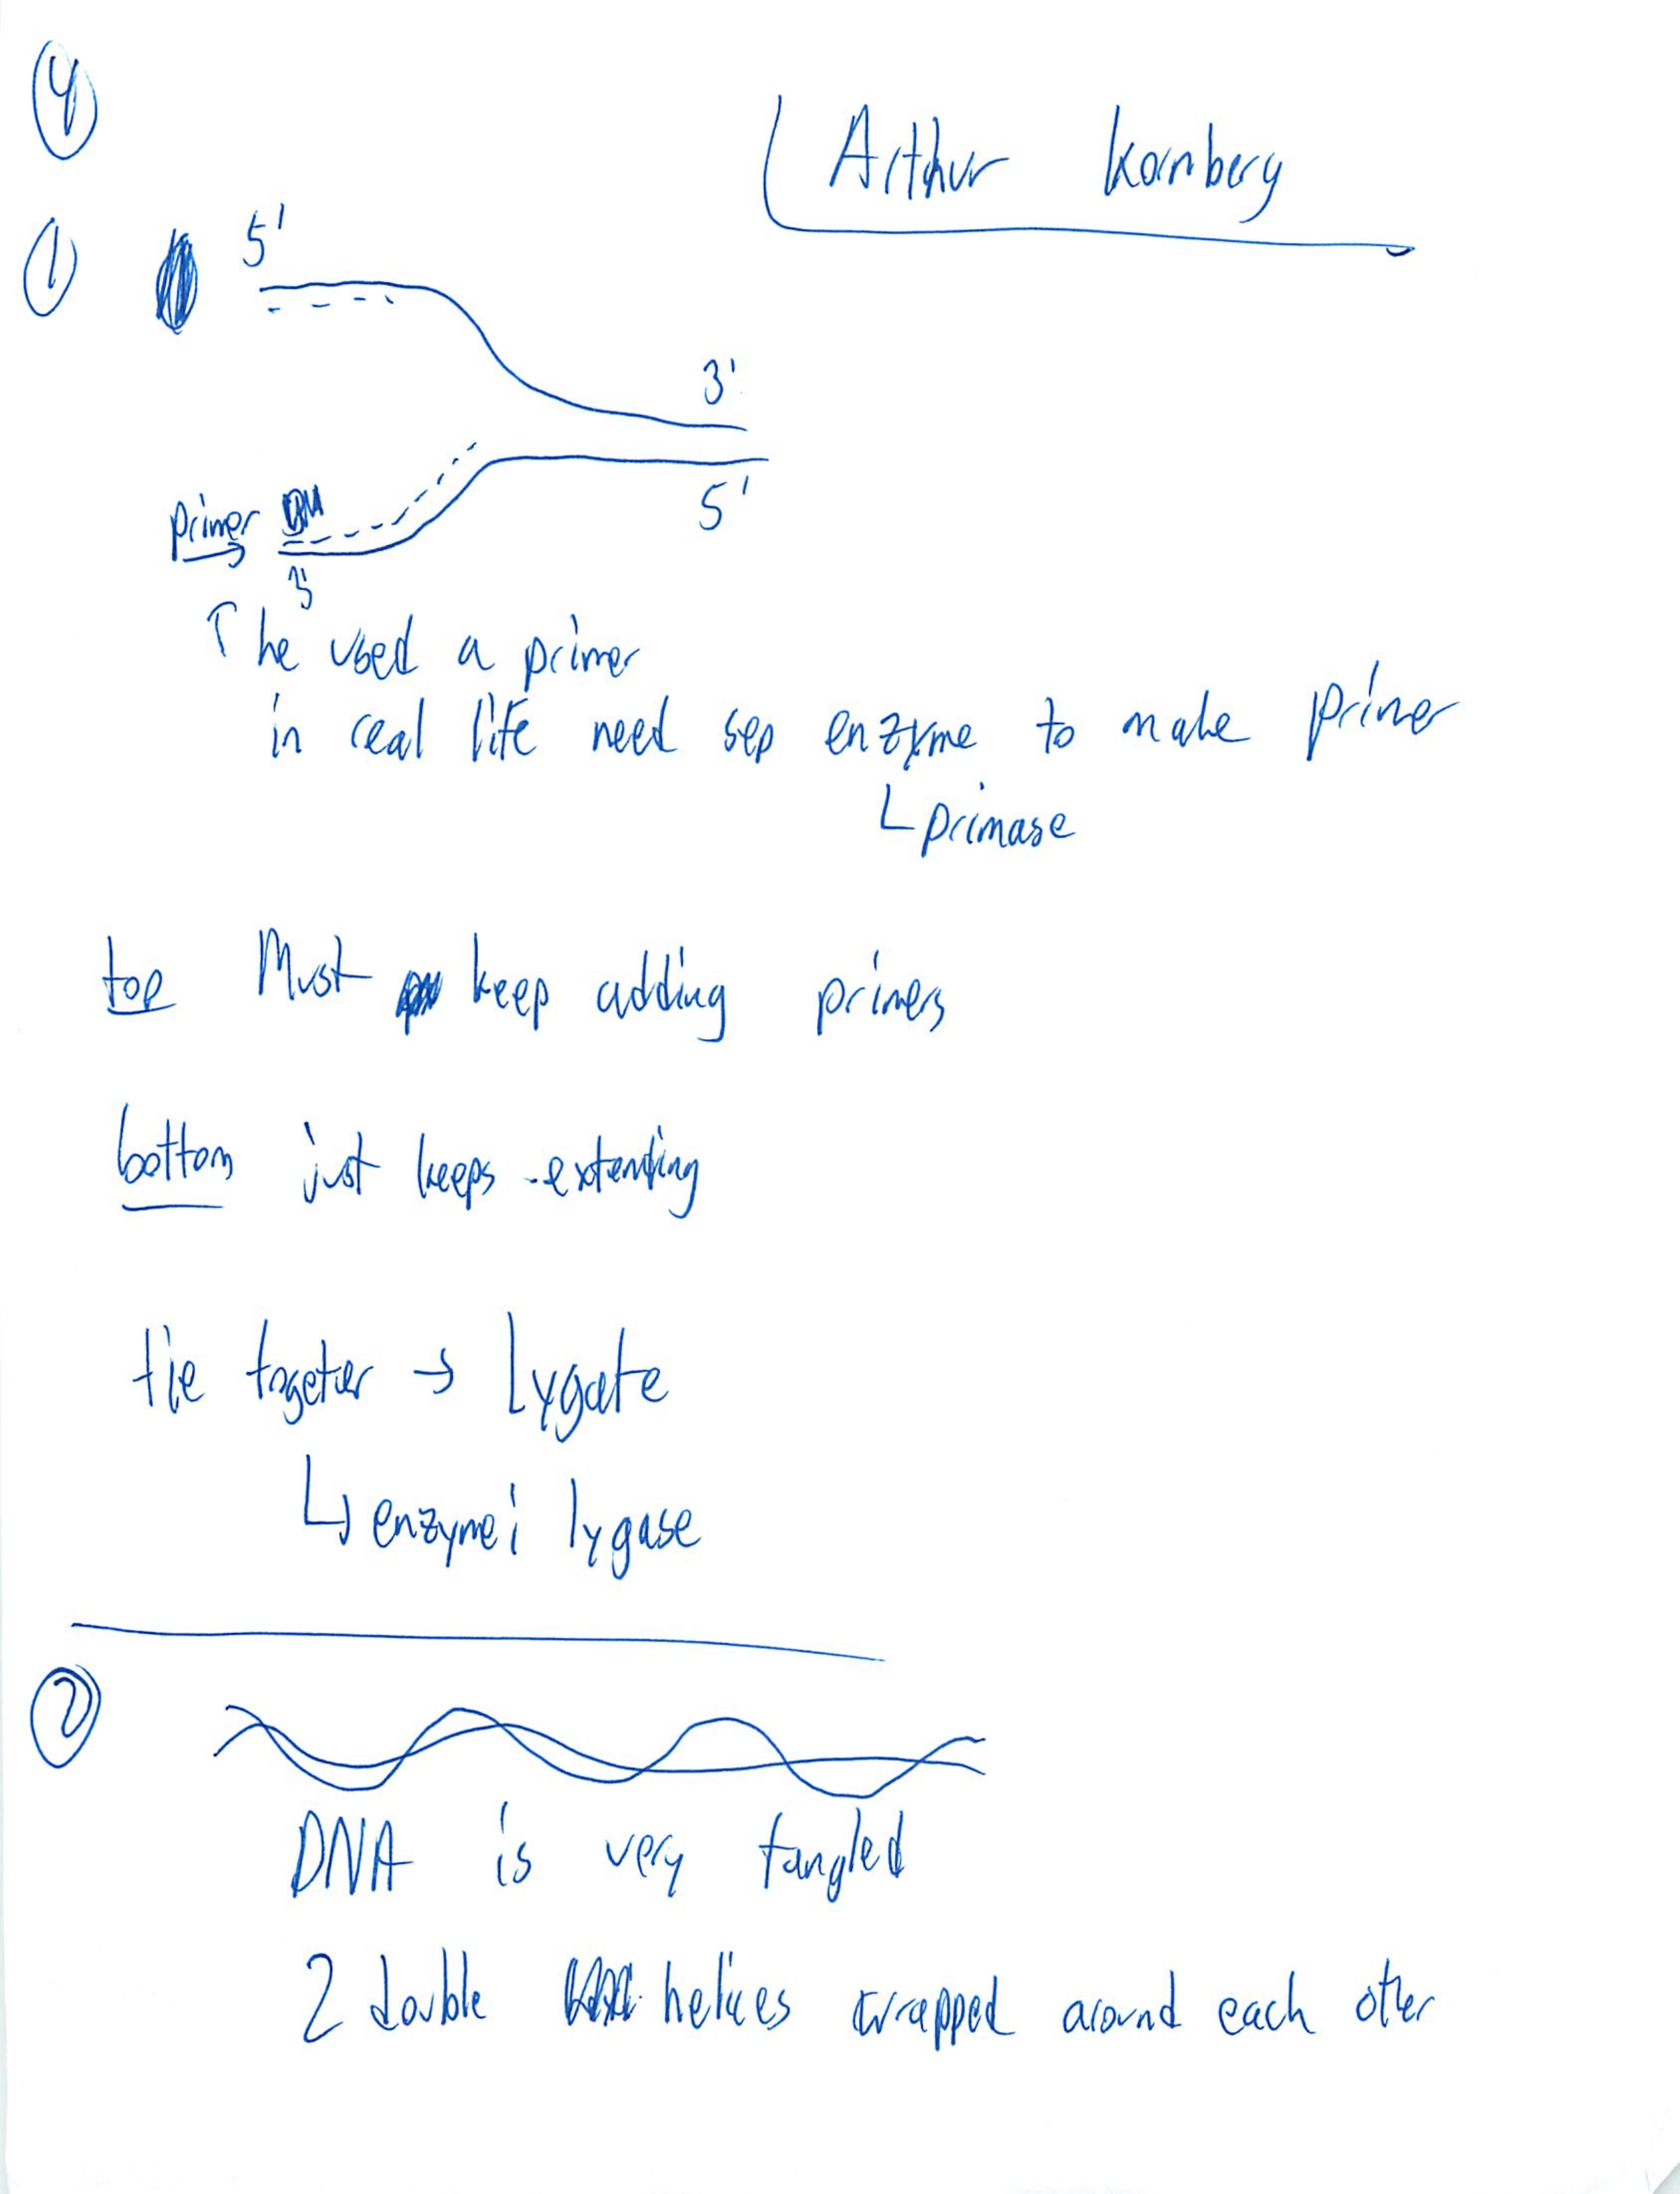 4
Arthur Kornberg
1
5'
3'
5'
primer
3'
he used a primer
in real life need sep enzyme to make primer
primase
top Must keep adding primers
bottom just keeps extending
tie togeter → Lygate
↳ enzyme: lygase
2
DNA is very tangled
2 double helices wrapped around each other